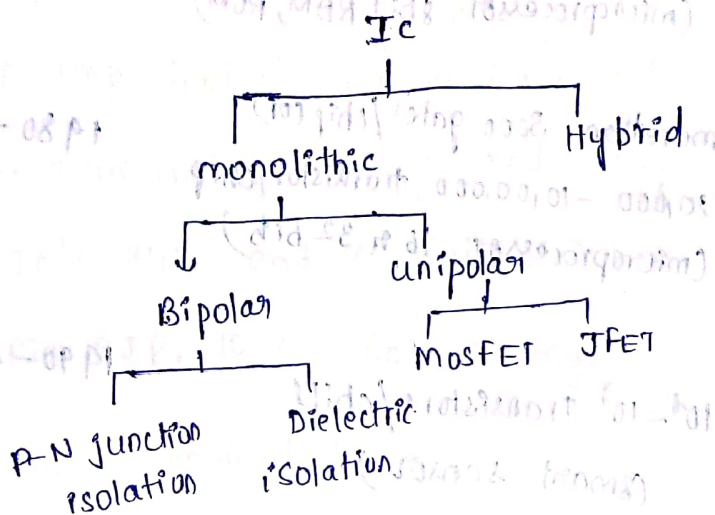 IC
monolithic
Hybrid
Bipolar
unipolar
MOSFET
JFET
P-N junction
isolation
Dielectric
isolation